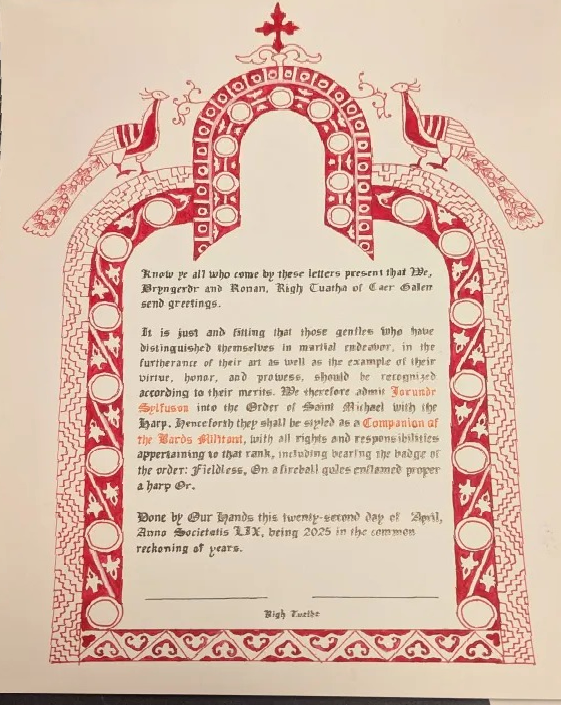 Know ye all who come by these letters present that We,
Bryngerdr and Ronan, Righ Tuatha of Caer Galen
send greetings.
It is just and fitting that those gentles who have
distinguished themselves in martial endeavor, in the
furtherance of their art as well as the example of their
virtue, honor, and prowess, should be recognized
according to their merits. We therefore admit Jorundr
Sylfuson into the Order of Saint Michael with the
Harp. Henceforth they shall be styled as a Companion of
the Bards Militant, with all rights and responsibilities
appertaining to that rank, including bearing the badge of
the order: Fieldless, On a fireball gules enflamed proper
a harp Or.
Done by Our Hands this twenty-second day of April,
Anno Societatis LIX, being 2025 in the common
reckoning of years.
Righ Tuatha